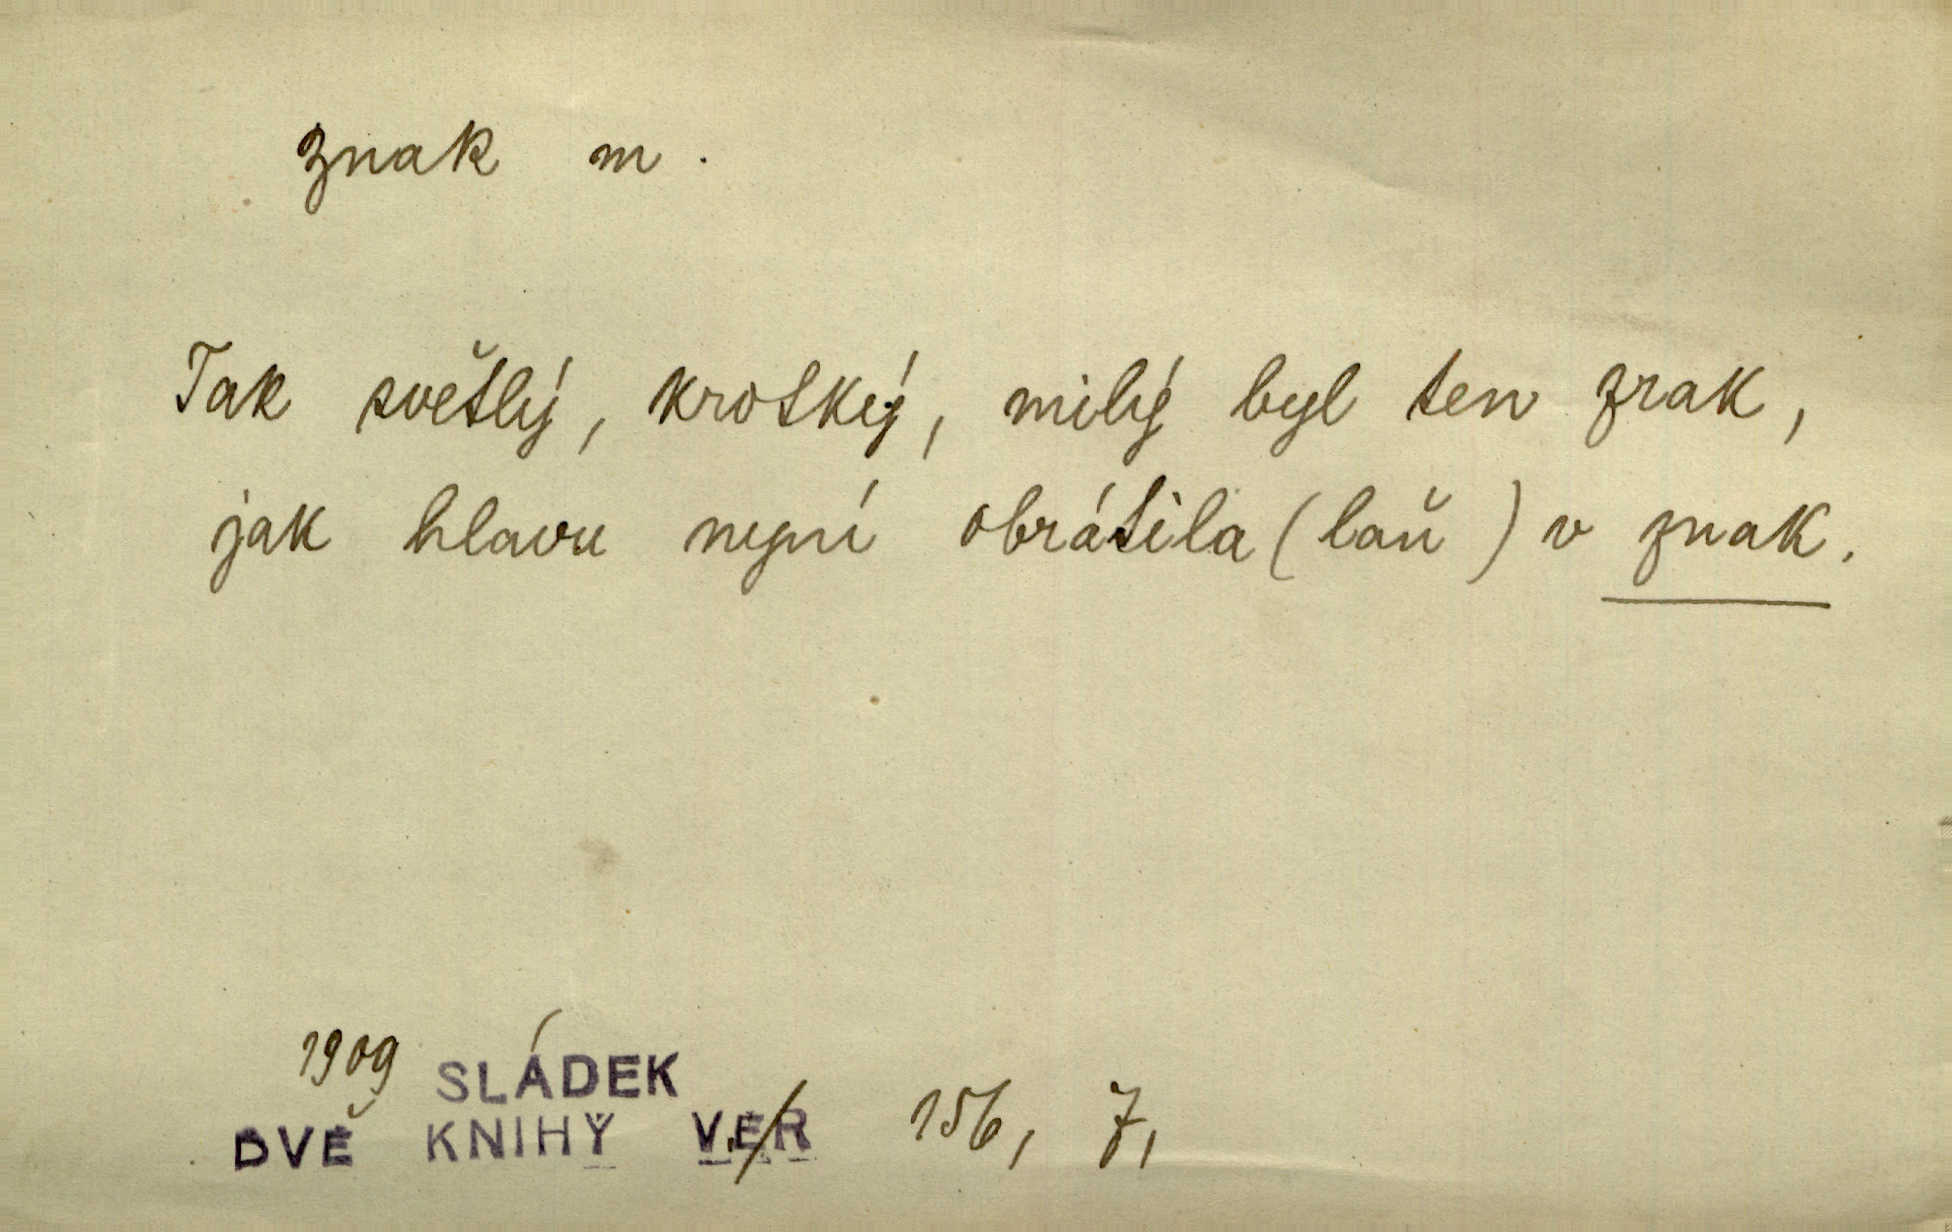 znak m.
Tak světlý, krotký, milý byl ten zrak,
jak hlavu nyní obrátila (laň) v znak.
1909 SLÁDEK
DVĚ KNIHY VER 156, 7,